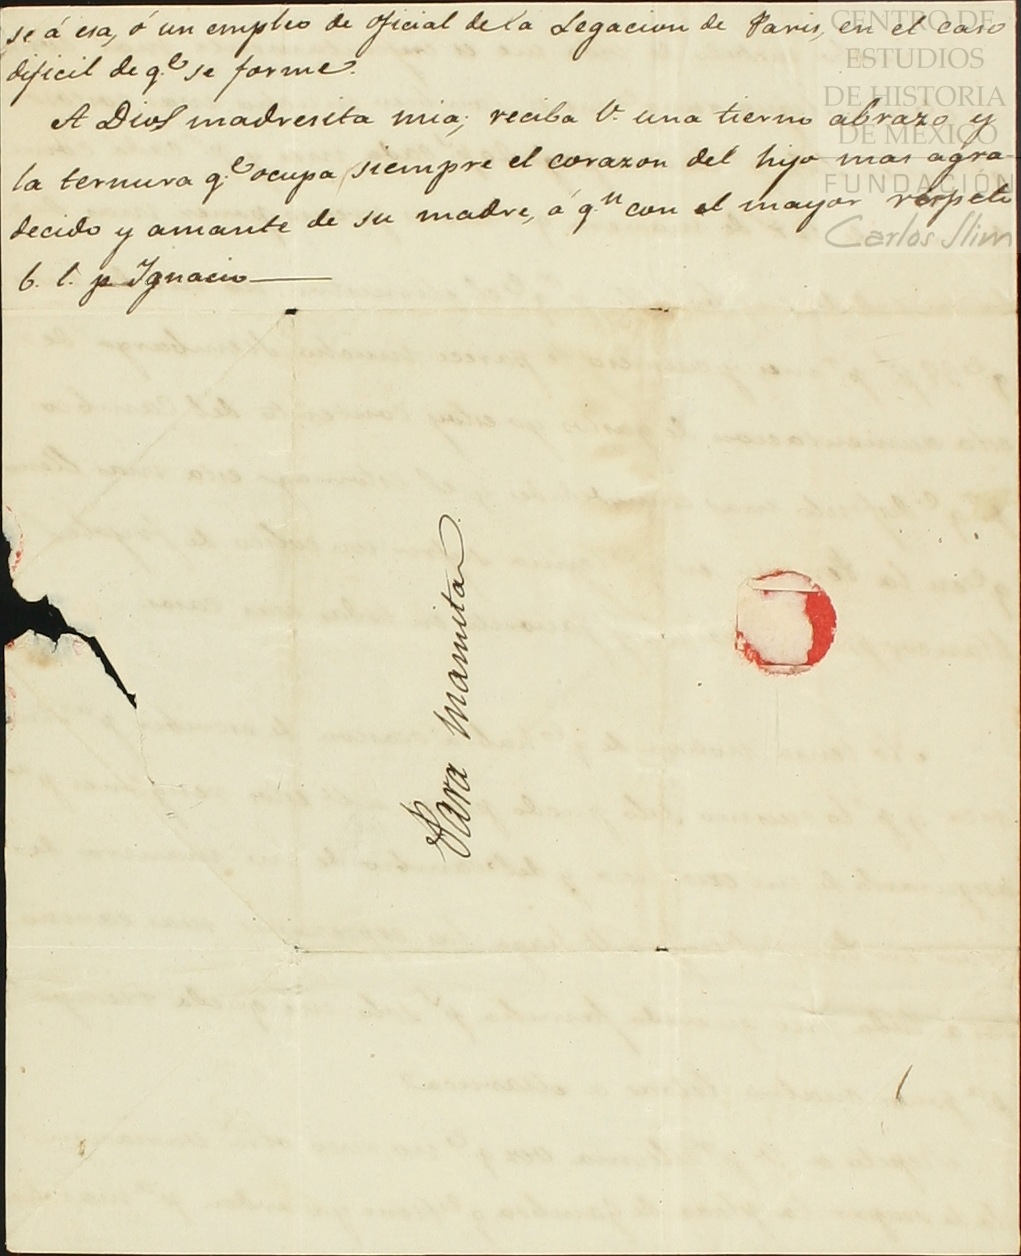 se á esa, ó un empleo de oficial de la Legacion de Paris, en el caso
dificil de q.e se forme.
A Dios madresita mia; reciba V. una tierno abrazo y
la ternura q.e ocupa siempre el corazon del hijo mas agra-
decido y amante de su madre, á q.n con el mayor respeto
b. l. p. Ignacio
Para mamita.
CENTRO DE
ESTUDIOS
DE HISTORIA
DE MÉXICO
FUNDACIÓN
Carlos Slim